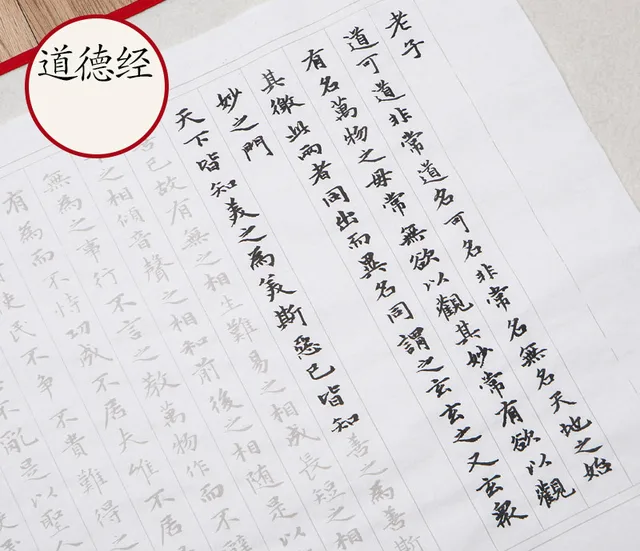 道德经
老子
道可道非常道名可名非常名無名天地之始
有名萬物之母常無欲以觀其妙常有欲以觀
其徼此兩者同出而異名同謂之玄玄之又玄衆
妙之門
天下皆知美之為美斯惡已皆知善之為善斯
已故有無之相生難易之相成長短之相
之相傾音聲之相和前後之相隨是
無為之事行不言之教萬物作而不
有為而不恃功成不居夫唯不居
使民不爭不貴難得之
亂是以聖人